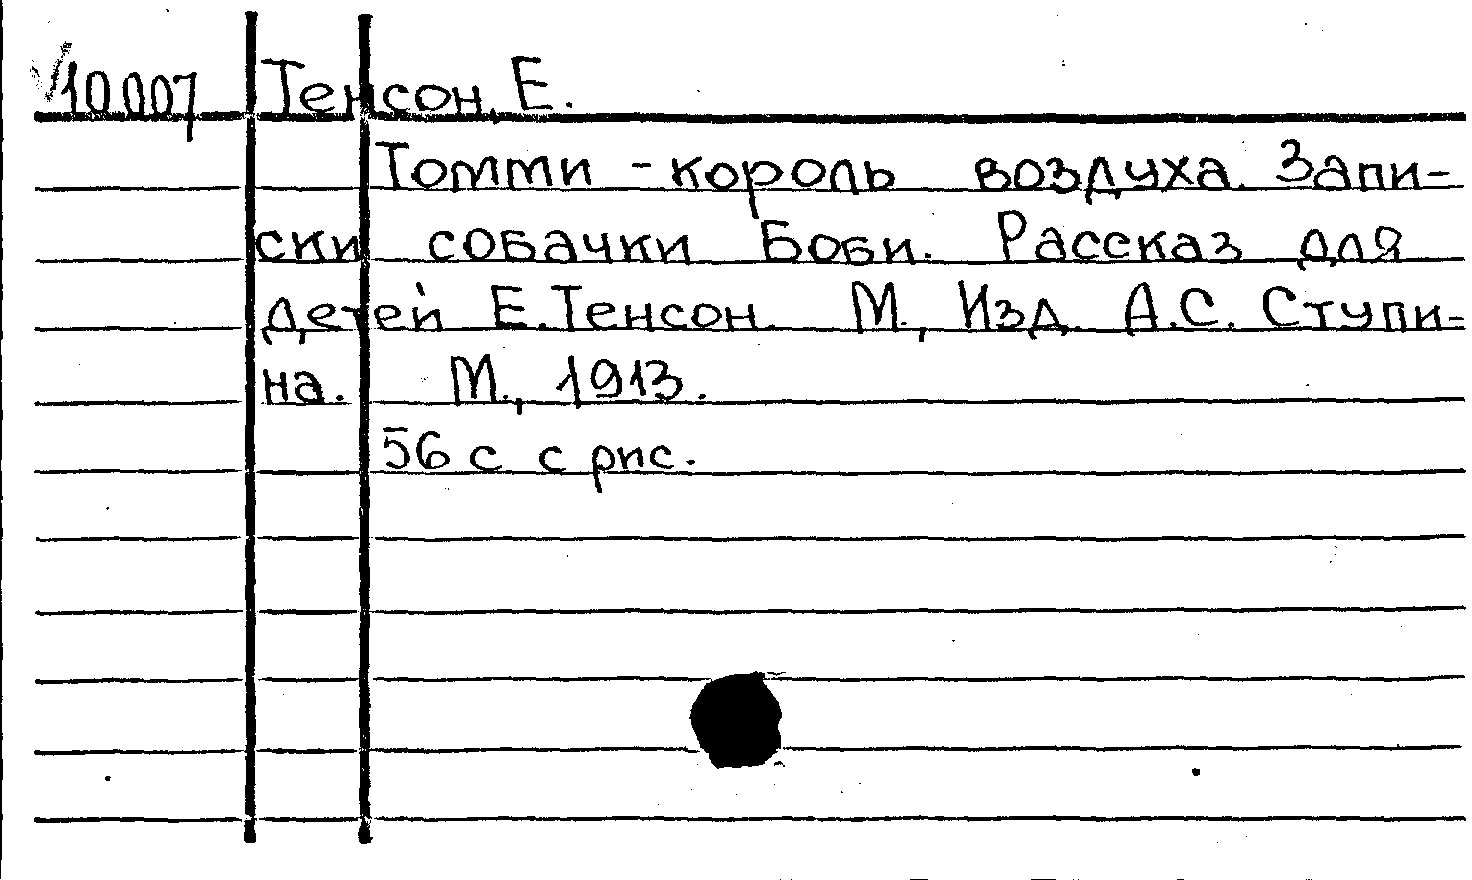 10.007 Тенсон, Е.
Томми - король воздуха. Запи-
ски собачки Боби. Рассказ для
детей Е.Тенсон. М., Изд. А.С. Ступи-
на. М., 1913.
56 с с рис.